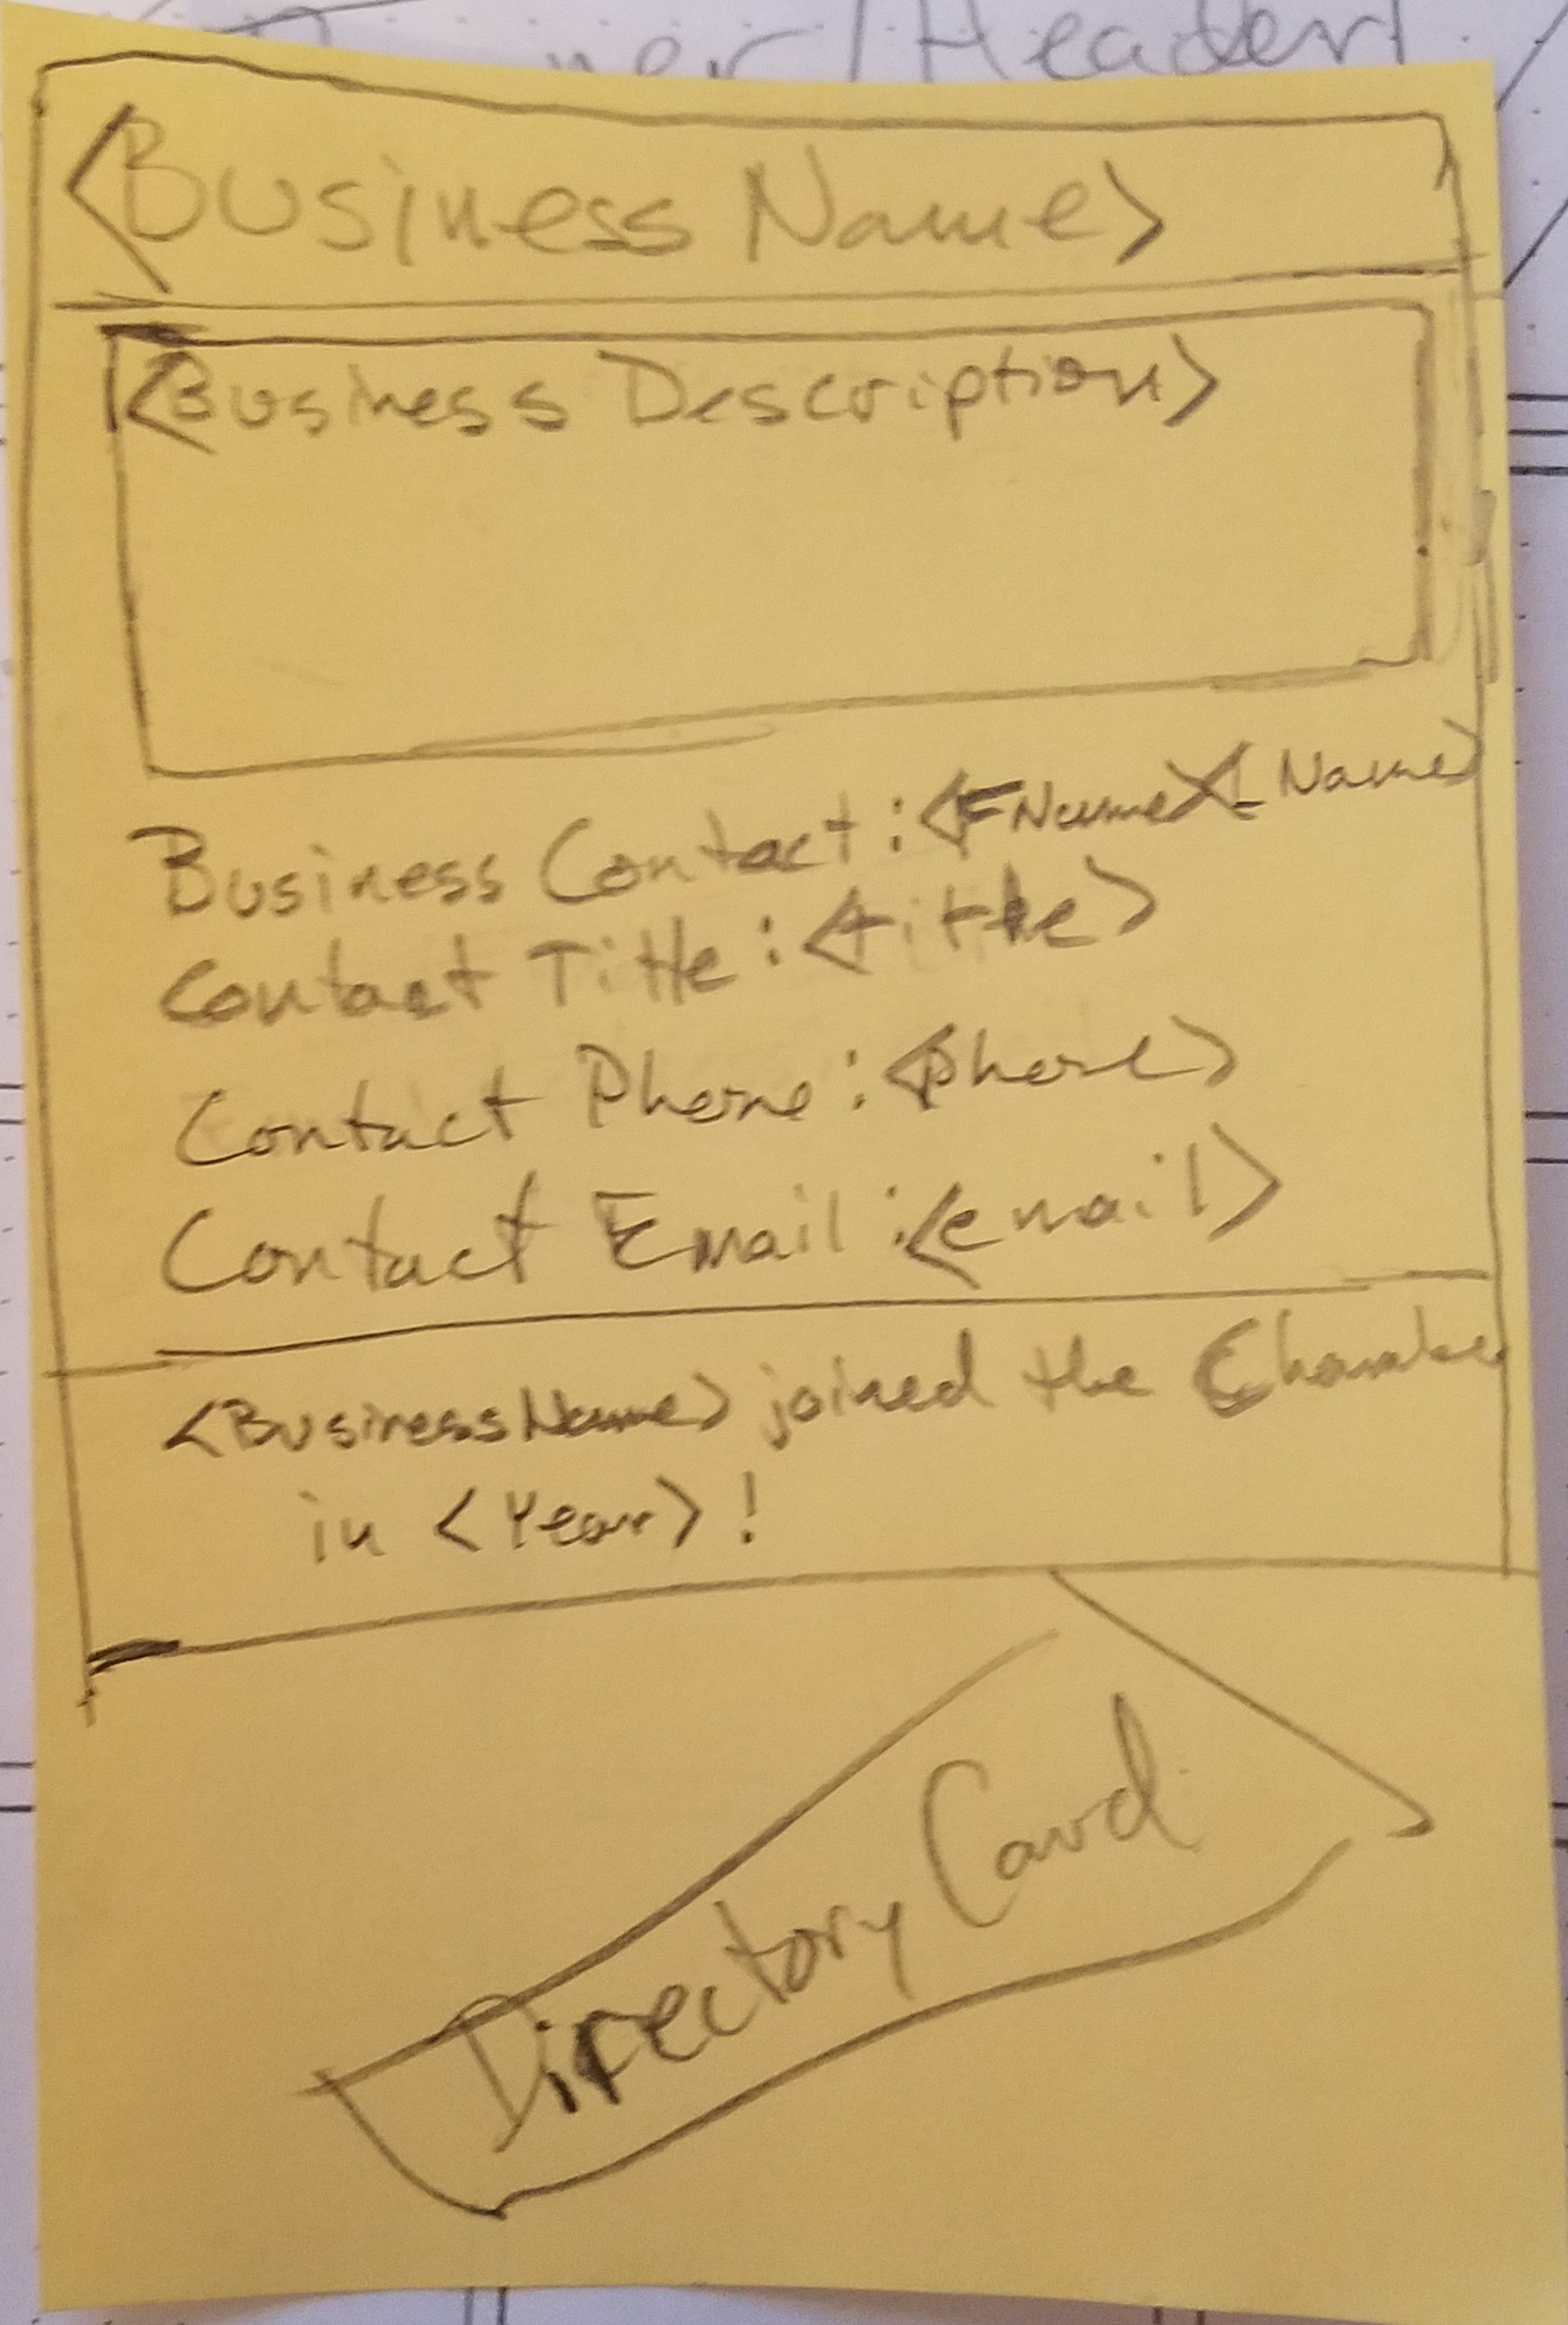 ner/Header
<Business Name>
<Business Description>
Business Contact: <FName><LName>
Contact Title: <title>
Contact Phone: <phone>
Contact Email: <email>
<BusinessName> joined the Chamber
in <Year>!
Directory Card